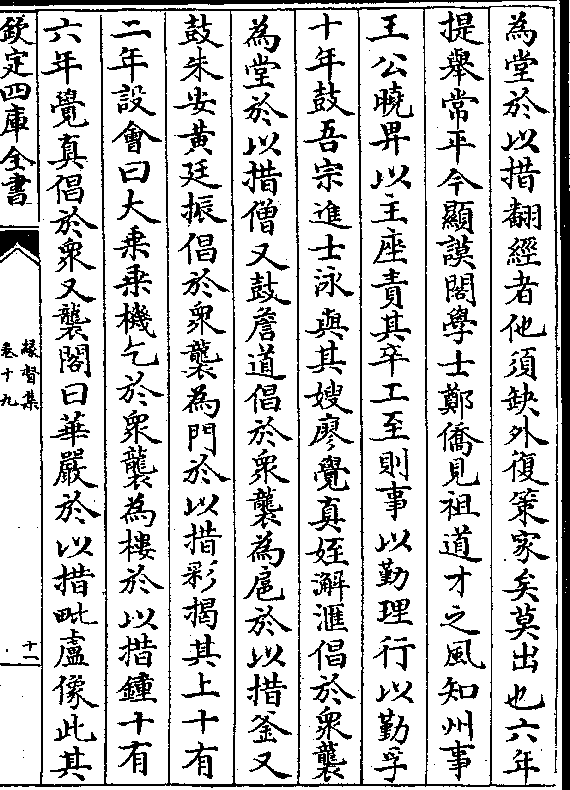 為堂於以措翻經者他須缺外復策家矣莫出也六年
提舉常平今顯謨閣學士鄭僑見祖道才之風知州事
王公曉畀以主座責其卒工至則事以勤理行以勤孚
十年鼓吾宗進士泳與其嫂廖覺真姪澥滙倡於衆襲
為堂於以措僧又鼓詹道倡於衆襲為扈於以措釜又
鼓朱安黃廷振倡於衆襲為門於以措彩揭其上十有
二年設會曰大乘乘機乞於衆襲為樓於以措鍾十有
六年覺真倡於衆又襲閣曰華嚴於以措毗盧像此其
欽定四庫全書
緣督集
卷十九
十二